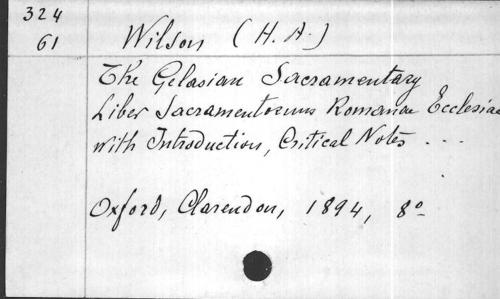 324
61
Wilson (H. A.)
The Gelasian Sacramentary
Liber Sacramentorum Romanae Ecclesiae
with Introduction, Critical Notes ...
Oxford, Clarendon, 1894, 8o